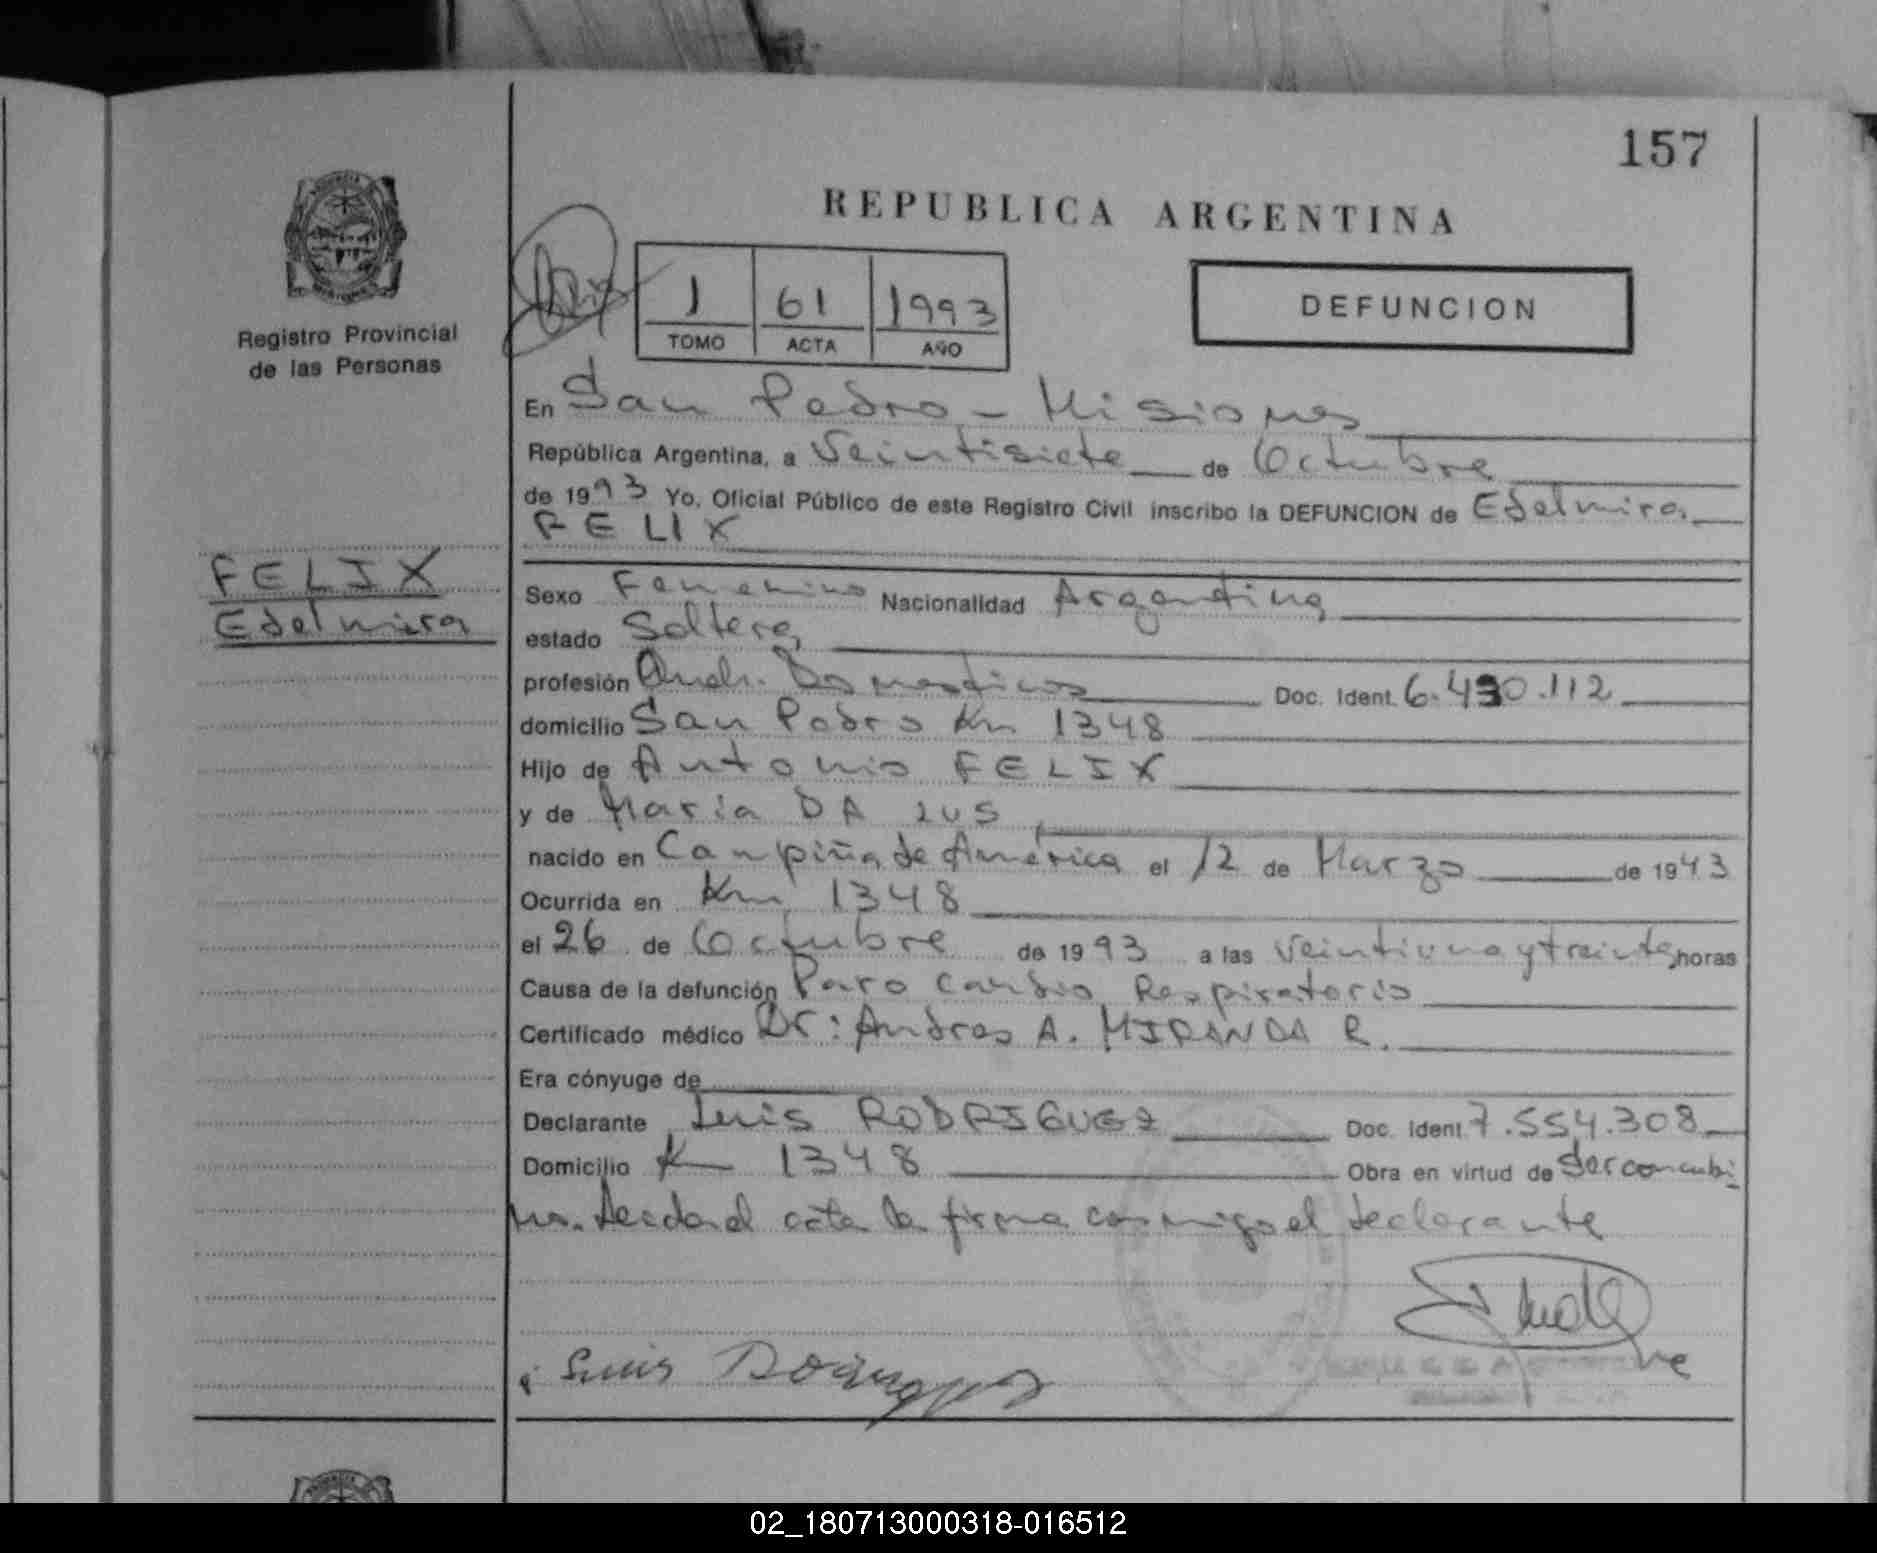 157
REPUBLICA ARGENTINA
Registro Provincial
de las Personas
1 61 1993
TOMO ACTA AÑO
DEFUNCION
En San Pedro - Misiones
República Argentina, a Veintisiete de Octubre
de 1993 Yo, Oficial Público de este Registro Civil inscribo la DEFUNCION de Edelmira
FELIX
FELIX
Edelmira
Sexo Femenino Nacionalidad Argentina
estado Soltera
profesión Queh. Domesticos Doc. Ident. 6.430.112
domicilio San Pedro Km 1348
Hijo de Antonio FELIX
y de Maria DA LUS
nacido en Campiña de América el 12 de Marzo de 1943
Ocurrida en Km 1348
el 26 de Octubre de 1993 a las veintiuna y treinta horas
Causa de la defunción Paro Cardio Respiratorio
Certificado médico Dr: Andres A. MIRANDA R.
Era cónyuge de
Declarante Luis RODRIGUEZ Doc. Ident. 7.554.308
Domicilio K 1348 Obra en virtud de Ser concubi-
no. Leida el acta la firma conmigo el declarante
Luis
02_180713000318-016512